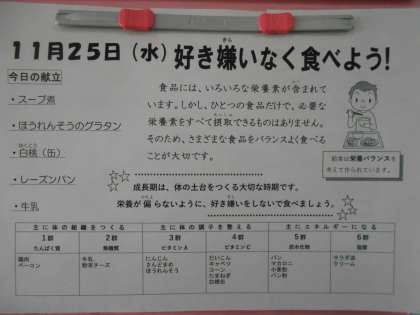 11月25日（水）好き嫌いなく食べよう！
きら
今日の献立
・スープ煮
・ほうれんそうのグラタン
はくとう
・白桃（缶）
・レーズンパン
・牛乳
食品には、いろいろな栄養素が含まれ
ています。しかし、ひとつの食品だけで、必要な
栄養素をすべて摂取できるものはありません。
そのため、さまざまな食品をバランスよく食べる
ことが大切です。
給食は栄養バランスを
考えて作られています。
成長期は、体の土台をつくる大切な時期です。
栄養が偏らないように、好き嫌いをしないで食べましょう。
主に体の組織をつくる 主に体の調子を整える 主にエネルギーになる
1群 2群 3群 4群 5群 6群
たんぱく質 無機質 ビタミンA ビタミンC 炭水化物 脂質
鶏肉 牛乳 にんじん だいこん パン サラダ油
ベーコン 粉末チーズ さんどまめ キャベツ マカロニ クリーム
ほうれんそう コーン 小麦粉
たまねぎ パン粉
白桃缶